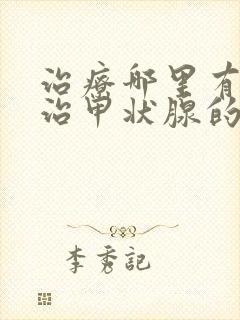 治疗哪里有
治甲状腺的
李秀記